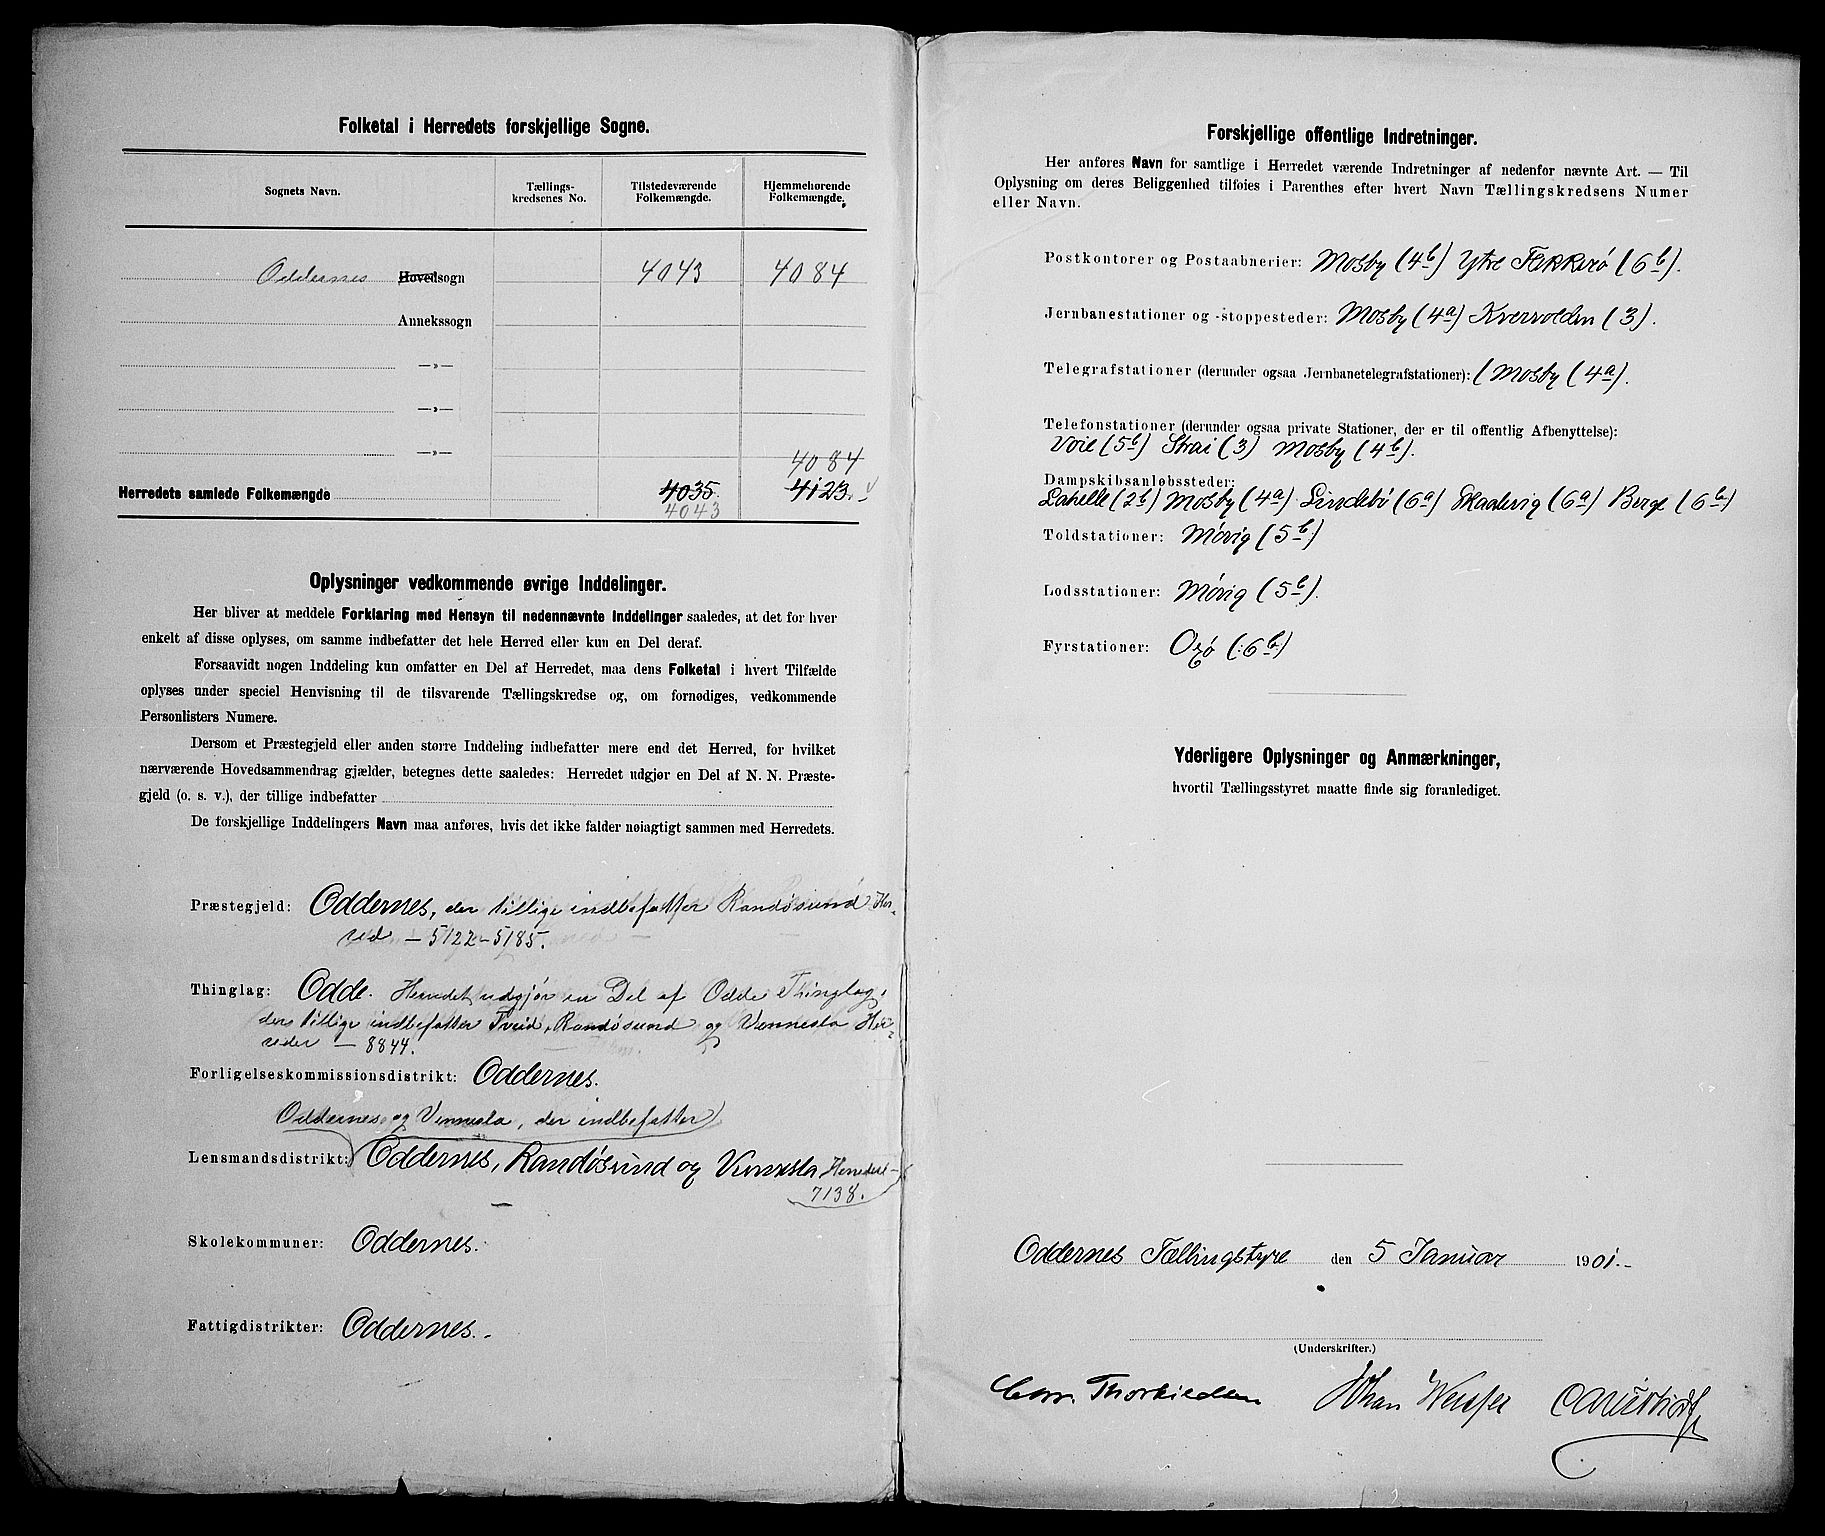 Folketal i Herredets forskjellige Sogne.
Sognets Navn. Tællings-kredsenes No. Tilstedeværende Folkemængde. Hjemmehørende Folkemængde.
Oddernes Hovedsogn 4043 4084
Annekssogn
—»—
—»—
—»—
4084
Herredets samlede Folkemængde 4035. 4123.
4043
Oplysninger vedkommende øvrige Inddelinger.
Her bliver at meddele Forklaring med Hensyn til nedennævnte Inddelinger saaledes, at det for hver
enkelt af disse oplyses, om samme indbefatter det hele Herred eller kun en Del deraf.
Forsaavidt nogen Inddeling kun omfatter en Del af Herredet, maa dens Folketal i hvert Tilfælde
oplyses under speciel Henvisning til de tilsvarende Tællingskredse og, om fornødiges, vedkommende
Personlisters Numere.
Dersom et Præstegjeld eller anden større Inddeling indbefatter mere end det Herred, for hvilket
nærværende Hovedsammendrag gjælder, betegnes dette saaledes: Herredet udgjør en Del af N. N. Præste-
gjeld (o. s. v.), der tillige indbefatter
De forskjellige Inddelingers Navn maa anføres, hvis det ikke falder nøiagtigt sammen med Herredets.
Præstegjeld: Oddernes, der tillige indbefatter Randøsund Her-
red — 5122 - 5185.
Thinglag: Odde. Herredet udgjør en Del af Odde Thinglag,
der tillige indbefatter Tveid, Randøsund og Vennesla Her-
reder — 8844.
Forligelseskommissionsdistrikt: Oddernes.
Oddernes og Vennesla, der indbefatter
Lensmandsdistrikt: Oddernes, Randøsund og Vennesla Herreder -
7138.
Skolekommuner: Oddernes.
Fattigdistrikter: Oddernes.
Forskjellige offentlige Indretninger.
Her anføres Navn for samtlige i Herredet værende Indretninger af nedenfor nævnte Art. — Til
Oplysning om deres Beliggenhed tilføies i Parenthes efter hvert Navn Tællingskredsens Numer
eller Navn.
Postkontorer og Postaabnerier: Mosby (4b) Ytre Flekkerø (6b).
Jernbanestationer og -stoppesteder: Mosby (4a) Kvervolden (3).
Telegrafstationer (derunder ogsaa Jernbanetelegrafstationer): (Mosby (4a).
Telefonstationer (derunder ogsaa private Stationer, der er til offentlig Afbenyttelse):
Voie (5b) Strai (3) Mosby (4b).
Dampskibsanløbssteder:
Lahelle (2b) Mosby (4a) Lindebø (6a) Skadevig (6a) Berge (6b)
Toldstationer: Møvig (5b)
Lodsstationer: Møvig (5b).
Fyrstationer: Oxø (:6b)
Yderligere Oplysninger og Anmærkninger,
hvortil Tællingsstyret maatte finde sig foranlediget.
Oddernes Tællingstyre den 5 Januar 1901.-
(Underskrifter.)
Thorkildsen Johan